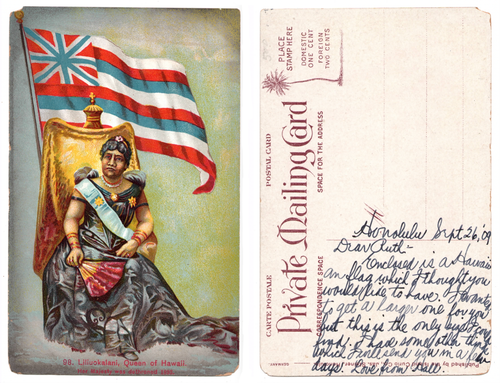 98. Liliuokalani, Queen of Hawaii
PLACE
STAMP HERE
DOMESTIC
ONE CENT
FOREIGN
TWO CENTS
POSTAL CARD
CARTE POSTALE
Private Mailing Card
SPACE FOR THE ADDRESS
CORRESPONDENCE SPACE
Honolulu Sept 26, '09
Dear Ruth -
Enclosed is a Hawaii
an flag which I thought you
would like to have. I wanted
to get a larger one for you
but this is the only size I could
find. I have some other things
which I'll send you in a few
days. Love from
GERMANY